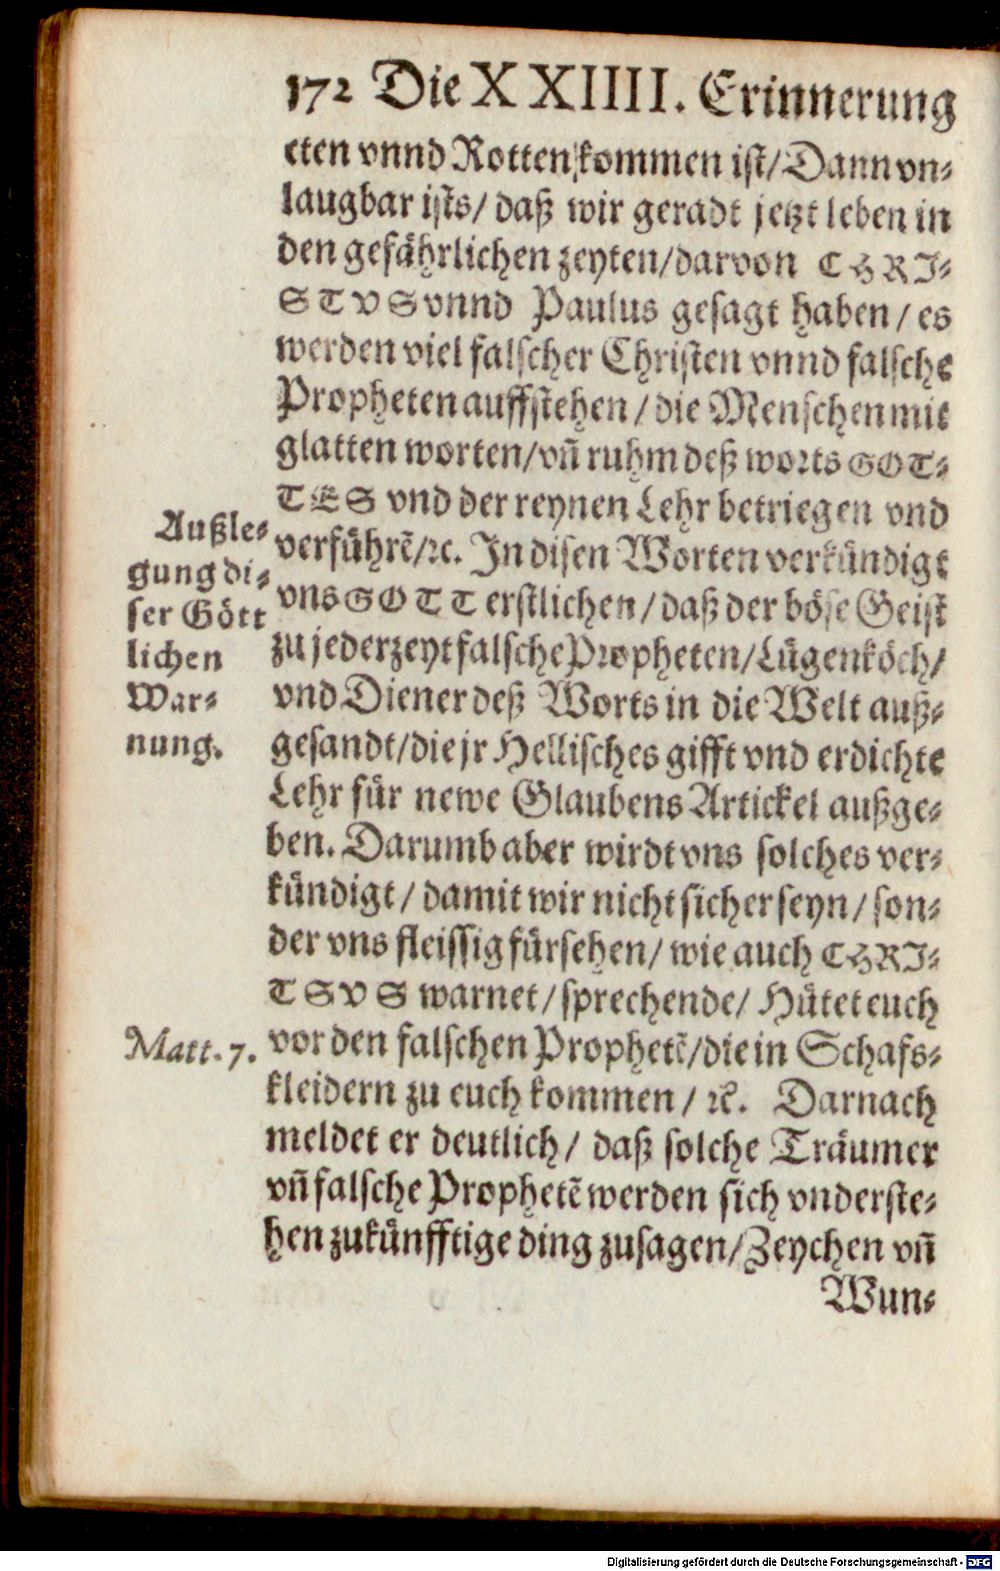 172 Die XXIIII. Erinnerung
cten vnnd Rotten kommen ist/ Dann vn-
laugbar ists/ daß wir geradt jetzt leben in
den gefährlichen zeyten/ darvon CHRI-
STVS vnnd Paulus gesagt haben/ es
werden viel falscher Christen vnnd falsche
Propheten auffstehen/ die Menschen mit
glatten worten/ vñ ruhm deß worts GOT-
TES vnd der reynen Lehr betriegen vnd
verführẽ/ ꝛc. In disen Worten verkündigt
vns GOTT erstlichen/ daß der böse Geist
zu jederzeyt falsche Propheten/ Lügenköch/
vnd Diener deß Worts in die Welt auß-
gesandt/ die jr Hellisches gifft vnd erdichte
Lehr für newe Glaubens Artickel außge-
ben. Darumb aber wirdt vns solches ver-
kündigt/ damit wir nicht sicher seyn/ son-
der vns fleissig fürsehen/ wie auch CHRI-
TSVS warnet/ sprechende/ Hütet euch
vor den falschen Prophetẽ/ die in Schafs-
kleidern zu euch kommen/ ꝛc. Darnach
meldet er deutlich/ daß solche Träumer
vñ falsche Prophetẽ werden sich vnderste-
hen zukünfftige ding zusagen/ Zeychen vñ
Wun-
Außle-
gung di-
ser Gött
lichen
War-
nung.
Matt. 7.
Digitalisierung gefördert durch die Deutsche Forschungsgemeinschaft - DFG